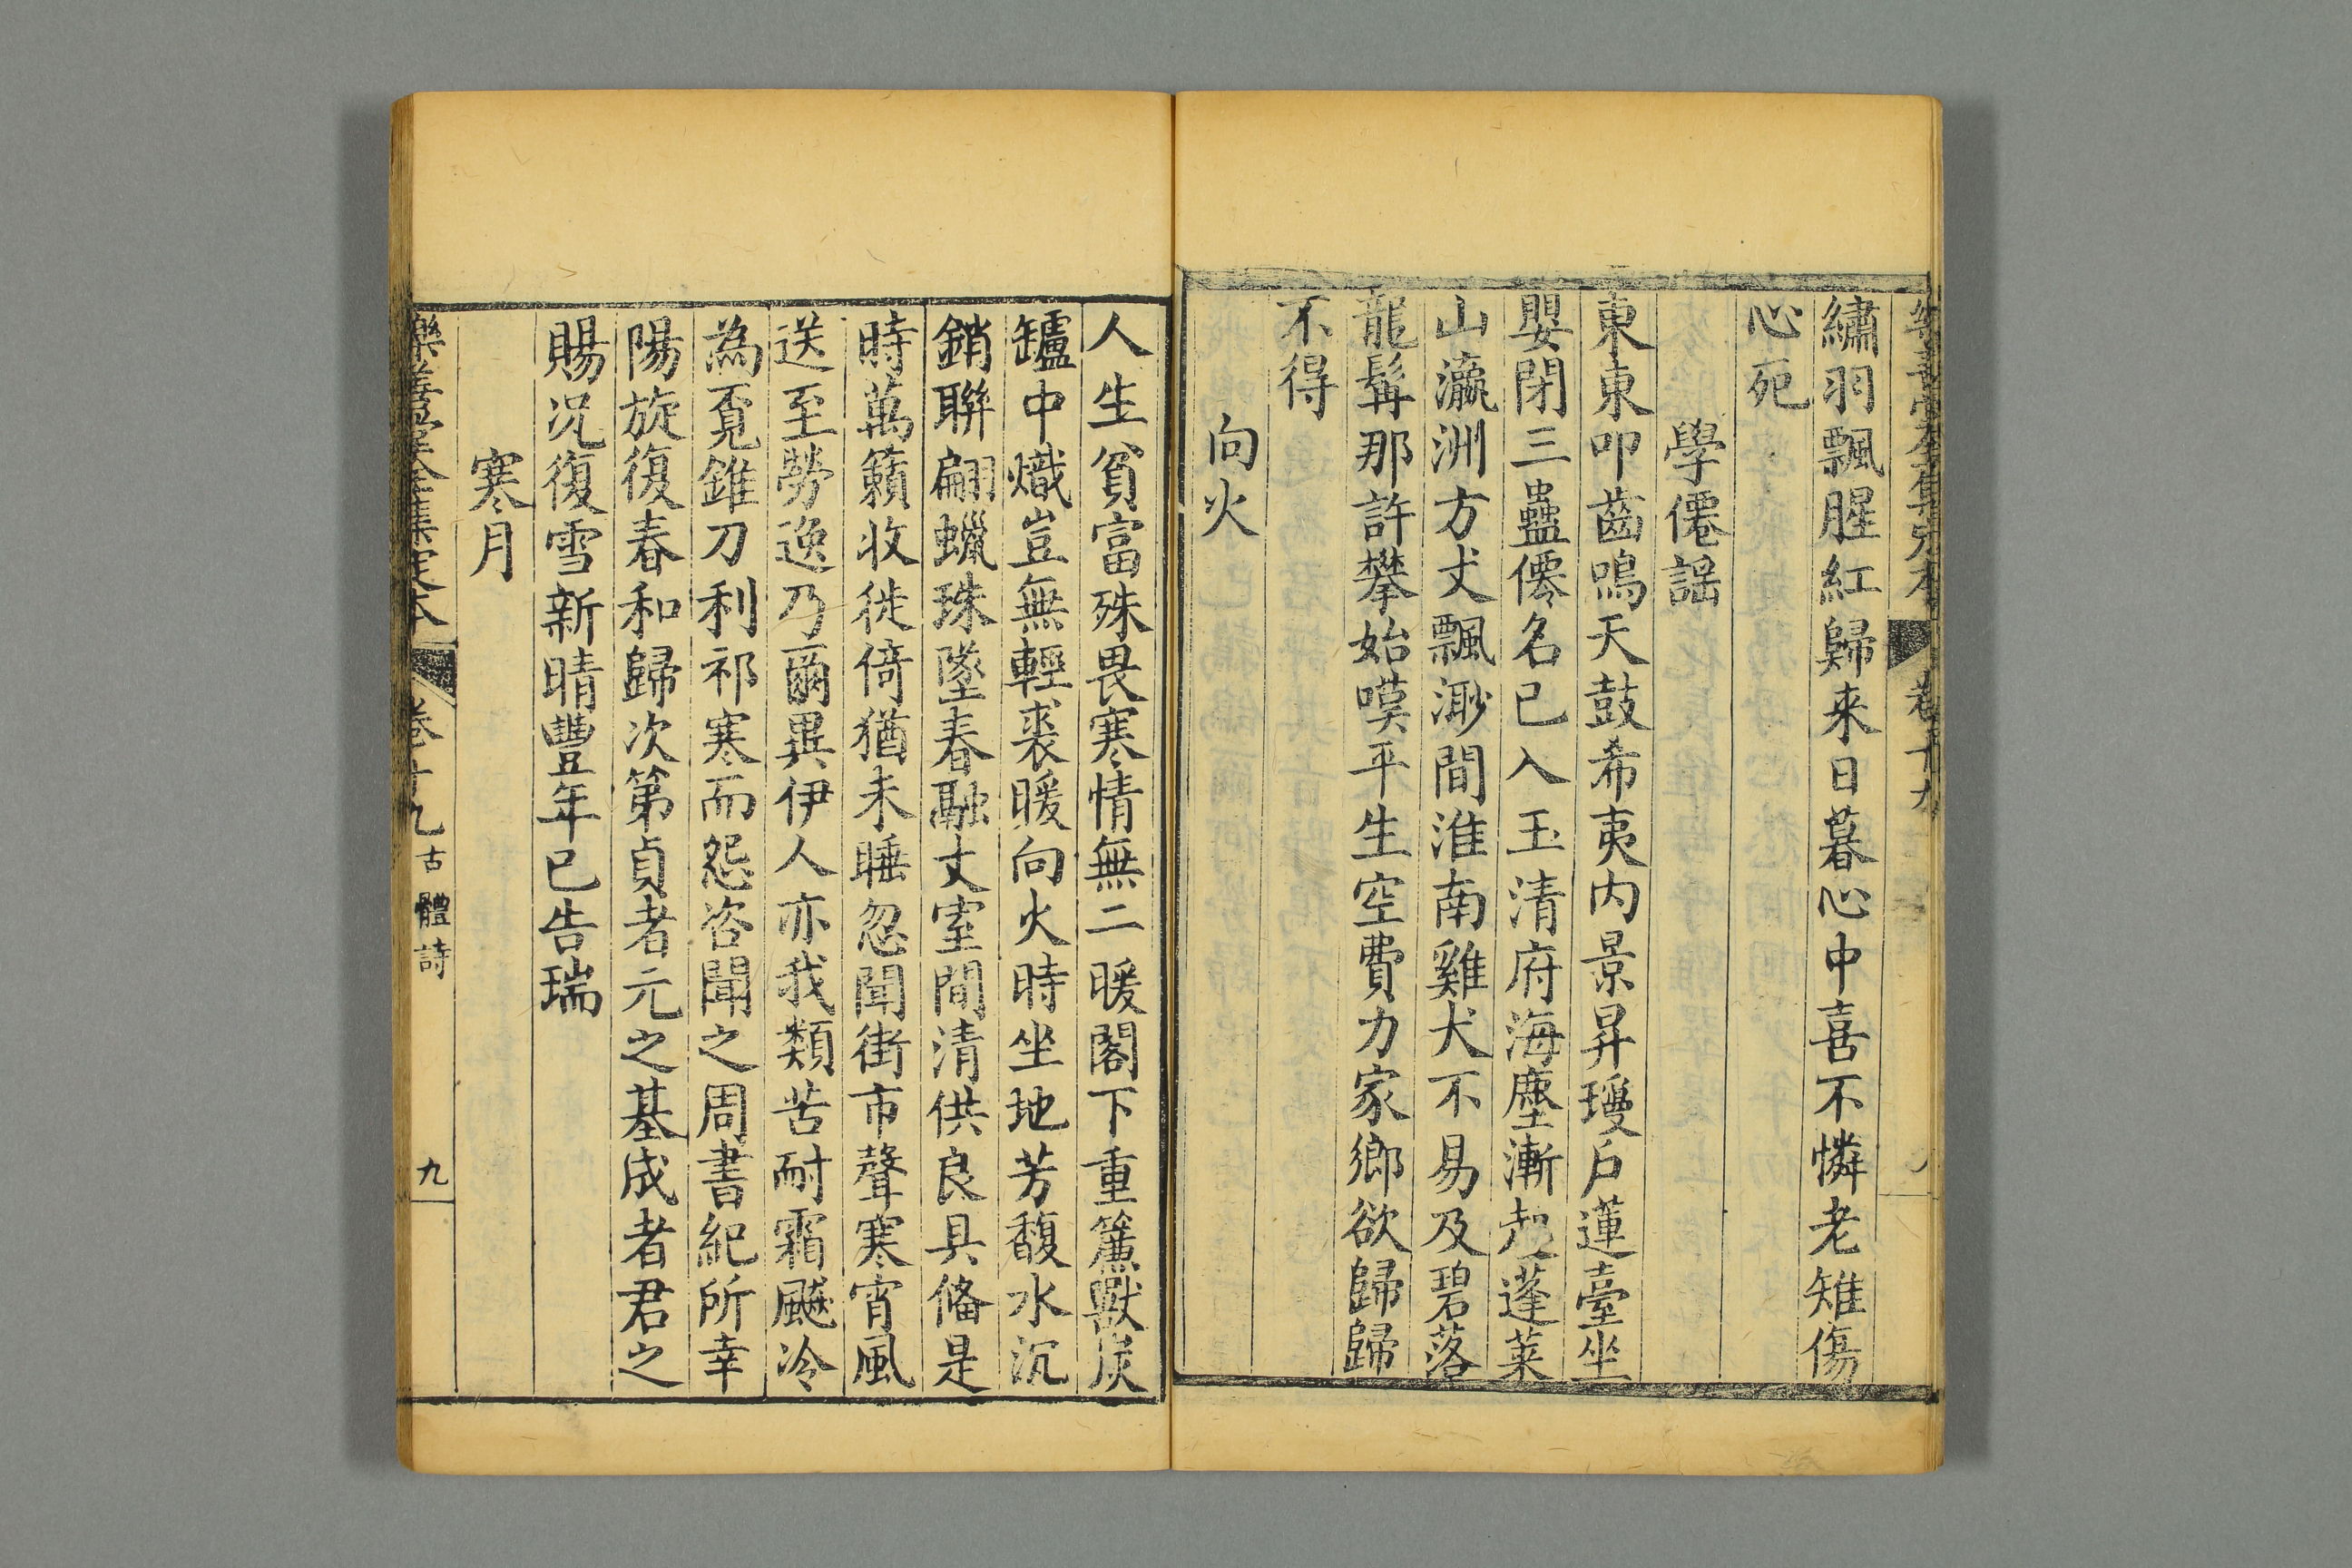 樂善堂全集定本 卷十九
繡羽飄腥紅歸來日暮心中喜不憐老雉傷
心死
學僊謡
東東叩齒鳴天鼓希夷内景昇瓊戶蓮臺坐
嬰閉三蟲僊名已入玉清府海塵漸起蓬萊
山瀛洲方丈飄渺間淮南雞犬不易及碧落
龍髯那許攀始嘆平生空費力家鄉欲歸歸
不得
向火
人生貧富殊畏寒情無二暖閣下重簾獸炭
罏中熾豈無輕裘暖向火時坐地芳馥水沉
銷聯翩蠟珠墜春融丈室間清供良具俻是
時萬籟收徙倚猶未睡忽聞街市聲寒宵風
送至勞逸乃爾異伊人亦我類苦耐霜颷冷
為覔錐刀利祁寒而怨咨聞之周書紀所幸
陽旋復春和歸次第貞者元之基成者君之
賜况復雪新晴豐年已告瑞
寒月
樂善堂全集定本 卷十九 古體詩 九